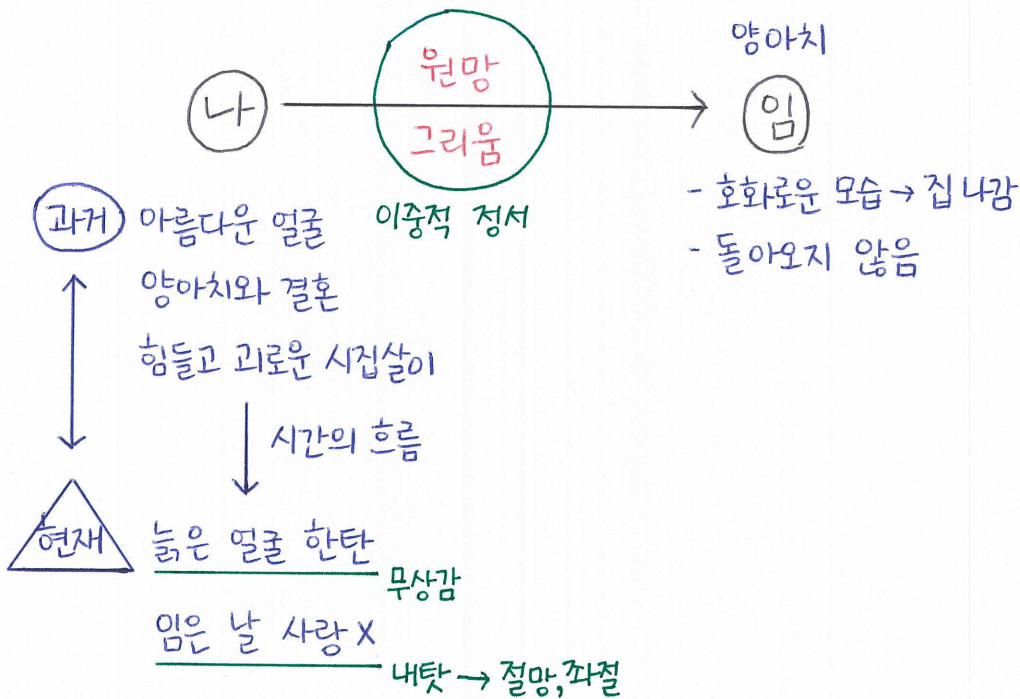 양아치
원망
나
임
그리움
이중적 정서
- 호화로운 모습 → 집 나감
- 돌아오지 않음
과거 아름다운 얼굴
양아치와 결혼
힘들고 괴로운 시집살이
시간의 흐름
현재 늙은 얼굴 한탄
무상감
임은 날 사랑 X
내탓 → 절망, 좌절